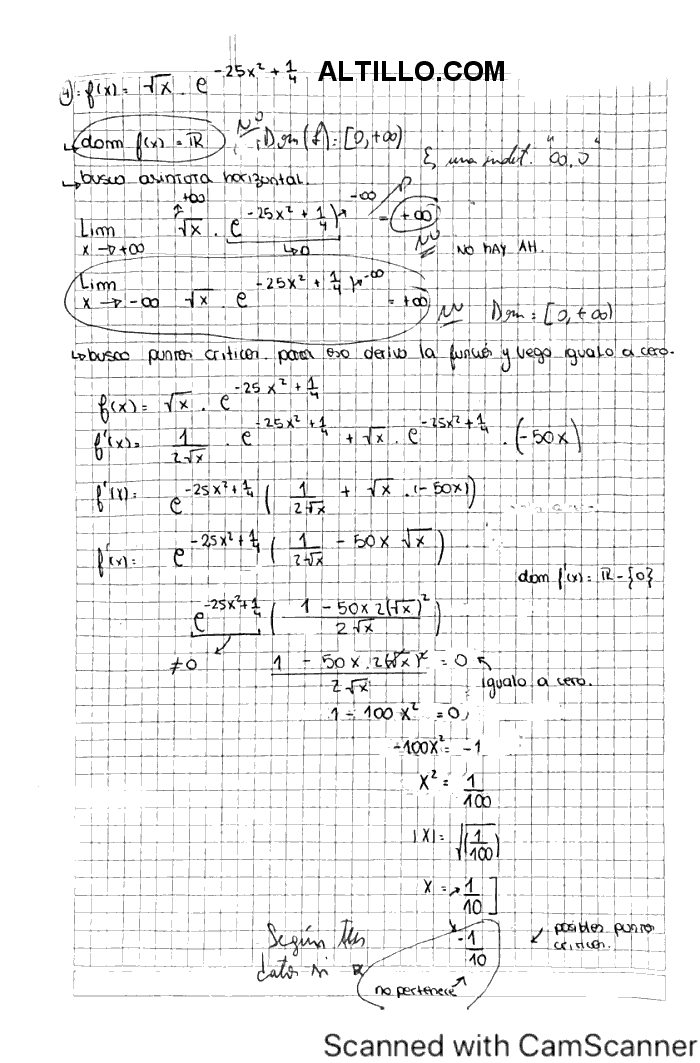 ALTILLO.COM
4): f(x) = √x . e^(-25x² + 1/4)
↳ dom f(x) = ℝ NO Dom(f): [0, +∞)
Es una indet. "∞.0"
↳ busco asintota horizontal.
Lim x→+∞ √x . e^(-25x² + 1/4) = +∞ NO
+∞ ↳0 -∞
NO HAY AH.
Lim x→-∞ √x . e^(-25x² + 1/4) = +∞ NO Dom = [0, +∞)
-∞
↳ busco puntos criticos. para eso derivo la función y luego igualo a cero.
f(x) = √x . e^(-25x² + 1/4)
f'(x) = 1/(2√x) . e^(-25x² + 1/4) + √x . e^(-25x² + 1/4) . (-50x)
f'(x): e^(-25x² + 1/4) ( 1/(2√x) + √x . (-50x))
f'(x): e^(-25x² + 1/4) ( 1/(2√x) - 50x √x )
dom f'(x) = ℝ - {0}
e^(-25x² + 1/4) ( (1 - 50x 2(√x)²)/(2√x) )
≠0 (1 - 50x . 2(√x)²)/(2√x) = 0 igualo a cero.
1 - 100x² = 0
-100x² = -1
x² = 1/100
|x| = √(1/100)
x = → 1/10
-1/10
posibles puntos criticos.
Según tus
datos si ℝ
no pertenece
Scanned with CamScanner